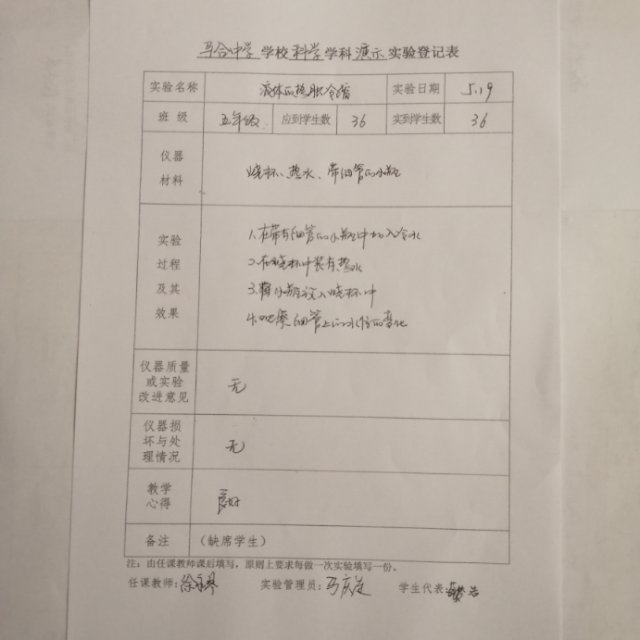 马合中学学校科学学科演示实验登记表
实验名称 液体的热胀冷缩 实验日期 5.19
班 级 五年级 应到学生数 36 实到学生数 36
仪器
材料
烧杯、热水、带细管的小瓶
实验
过程
及其
效果
1.在带有细管的小瓶中加入冷水
2.在烧杯中装有热水
3.将小瓶放入烧杯中
4.观察细管上的水柱的变化
仪器质量
或实验
改进意见
无
仪器损
坏与处
理情况
无
教学
心得
良好
备注 (缺席学生)
注：由任课教师课后填写，原则上要求每做一次实验填写一份。
任课教师: 实验管理员: 学生代表: